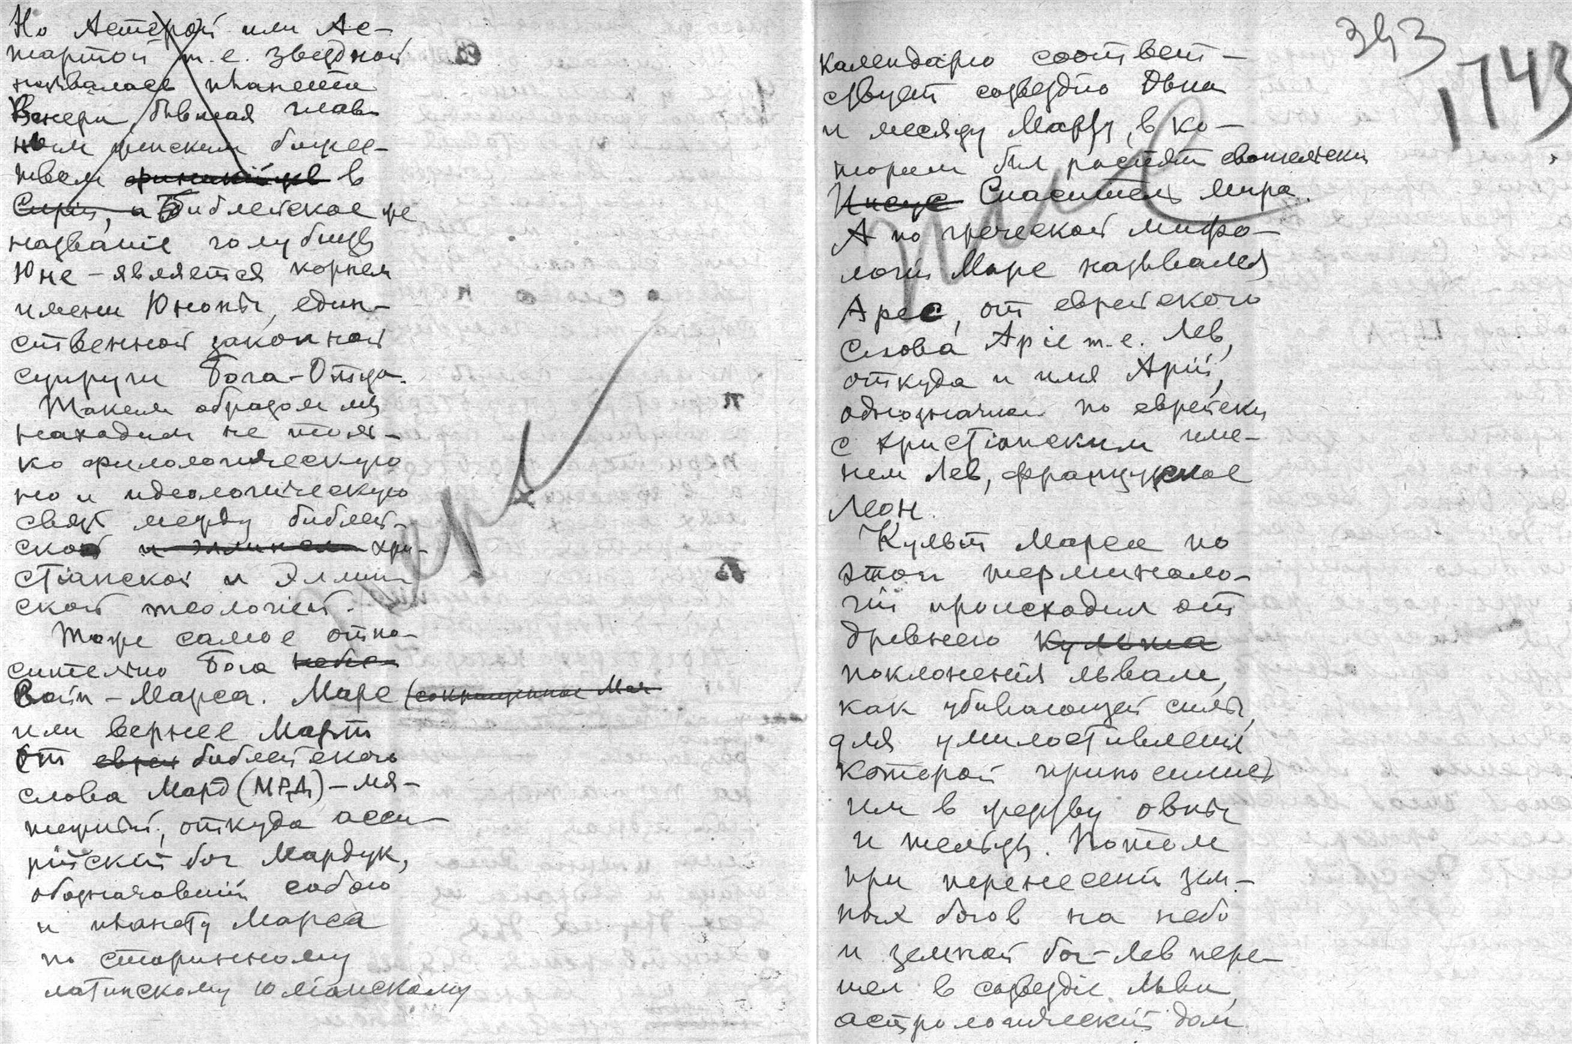 Но Астерой или Ас-
тартой т.е. звездной,
называлась планета
Венера, бывшая глав-
ным женским божес-
твом финикийцев в
Сирии, а Библейское же
название голубицы
Юне – является корнем
имени Юноны, един-
ственной законной
супруги Бога-Отца.
Таким образом мы
находим не толь-
ко филологическую
но и идеологическую
связь между библей-
ской и эллинско хри-
стіанской и Эллин
ской теологіей.
Тоже самое отно-
сительно Бога небе-
Войн – Марса. Марс (сокращенное Мар
или вернее Март
от еврей библейскаго
слова Мард (МРД) – мя-
тежный, откуда асси-
рійскій бог Мардук,
обозначавшій собою
и планету Марса
по старинному
латинскому юліанскому
393
1743
календарю соответ-
ствует созвездию Овна
и месяцу Марту, в ко-
тором был распят евангельски
Иисус Спаситель мира.
А по греческой мифо-
логіи Марс назывался
Арес, от еврейского
слова Аріе т.е. Лев,
откуда и имя Арій,
однозначное по еврейски
с христіанским име-
нем Лев, французское
Леон.
Культ Марса по
этой терминоло-
гіи происходил от
древнего культа
поклоненія львам,
как убивающей силы,
для умилостивленія
которой приносились
им в жертву овны
и тельцы. Потом
при перенесеніи зем-
ных богов на небо
и земной бог-Лев пере-
шел в созвездіе Льва,
астрологический дом